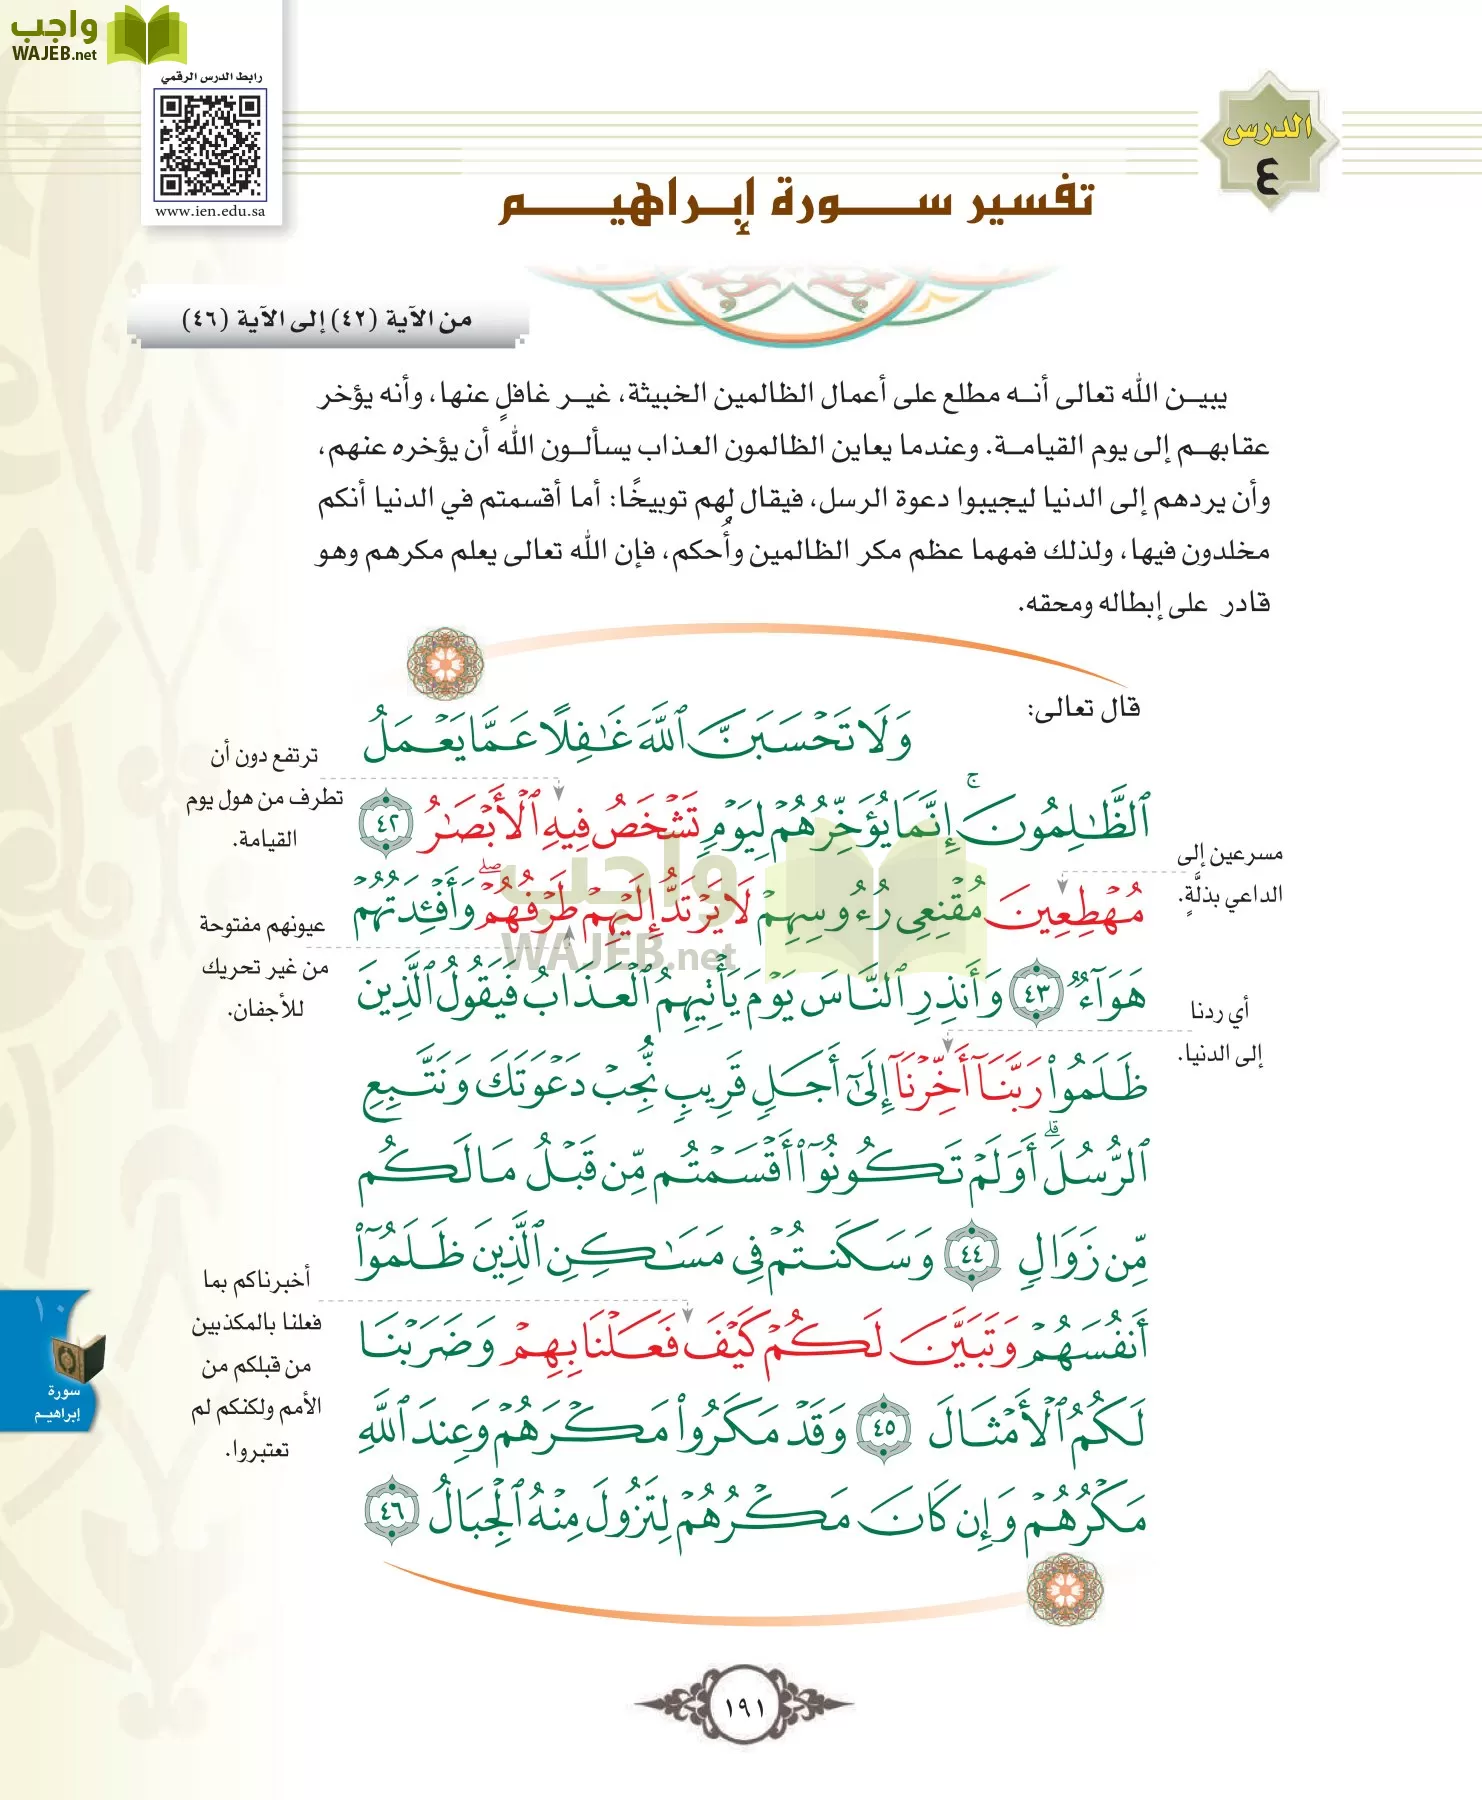 واجب
WAJEB.net
رابط الدرس الرقمي
www.ien.edu.sa
الدرس
٤
تفسير سورة إبراهيم
من الآية (٤٢) إلى الآية (٤٦)
يبين الله تعالى أنه مطلع على أعمال الظالمين الخبيثة، غير غافلٍ عنها، وأنه يؤخر
عقابهم إلى يوم القيامة. وعندما يعاين الظالمون العذاب يسألون الله أن يؤخره عنهم،
وأن يردهم إلى الدنيا ليجيبوا دعوة الرسل، فيقال لهم توبيخًا: أما أقسمتم في الدنيا أنكم
مخلدون فيها، ولذلك فمهما عظم مكر الظالمين وأُحكم، فإن الله تعالى يعلم مكرهم وهو
قادر على إبطاله ومحقه.
قال تعالى:
وَلَا تَحْسَبَنَّ ٱللَّهَ غَٰفِلًا عَمَّا يَعْمَلُ
ٱلظَّٰلِمُونَ ۚ إِنَّمَا يُؤَخِّرُهُمْ لِيَوْمٍ تَشْخَصُ فِيهِ ٱلْأَبْصَٰرُ ٤٢
مُهْطِعِينَ مُقْنِعِى رُءُوسِهِمْ لَا يَرْتَدُّ إِلَيْهِمْ طَرْفُهُمْ ۖ وَأَفْـِٔدَتُهُمْ
هَوَآءٌ ٤٣ وَأَنذِرِ ٱلنَّاسَ يَوْمَ يَأْتِيهِمُ ٱلْعَذَابُ فَيَقُولُ ٱلَّذِينَ
ظَلَمُوا۟ رَبَّنَآ أَخِّرْنَآ إِلَىٰٓ أَجَلٍ قَرِيبٍ نُّجِبْ دَعْوَتَكَ وَنَتَّبِعِ
ٱلرُّسُلَ ۗ أَوَلَمْ تَكُونُوٓا۟ أَقْسَمْتُم مِّن قَبْلُ مَا لَكُم
مِّن زَوَالٍ ٤٤ وَسَكَنتُمْ فِى مَسَٰكِنِ ٱلَّذِينَ ظَلَمُوٓا۟
أَنفُسَهُمْ وَتَبَيَّنَ لَكُمْ كَيْفَ فَعَلْنَا بِهِمْ وَضَرَبْنَا
لَكُمُ ٱلْأَمْثَالَ ٤٥ وَقَدْ مَكَرُوا۟ مَكْرَهُمْ وَعِندَ ٱللَّهِ
مَكْرُهُمْ وَإِن كَانَ مَكْرُهُمْ لِتَزُولَ مِنْهُ ٱلْجِبَالُ ٤٦
مسرعين إلى
الداعي بذلَّةٍ.
أي ردنا
إلى الدنيا.
ترتفع دون أن
تطرف من هول يوم
القيامة.
عيونهم مفتوحة
من غير تحريك
للأجفان.
أخبرناكم بما
فعلنا بالمكذبين
من قبلكم من
الأمم ولكنكم لم
تعتبروا.
واجب
WAJEB.net
١٠
سورة
إبراهيم
١٩١